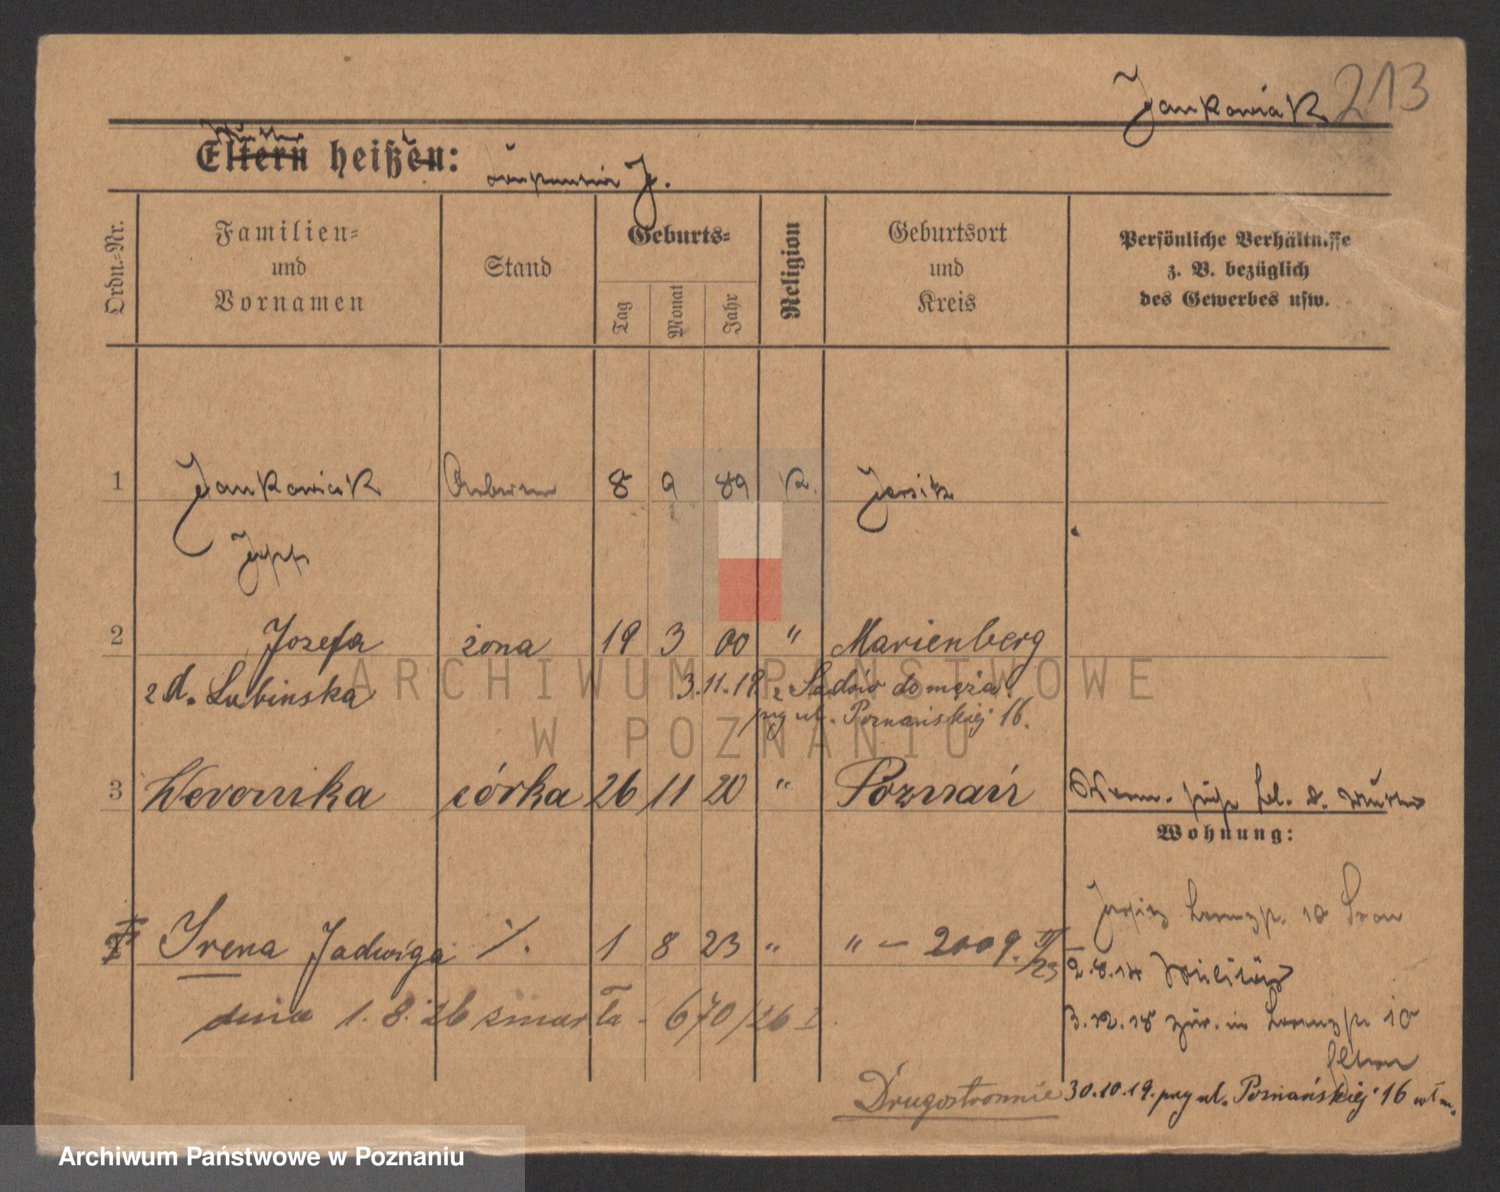 Jankowiak 213
Mutter
Eltern heißen: J.
Ordn.-Nr.
Familien-
und
Vornamen
Stand
Geburts-
Tag
Monat
Jahr
Religion
Geburtsort
und
Kreis
Persönliche Verhältnisse
z. B. bezüglich
des Gewerbes usw.
1 Jankowiak 8 9 89 K. Jersitz
Josef
2 Josefa żona 19 3 00 " Marienberg
z d. Lubinska 3.11.19 z Sadów do męża
przy ul. Poznańskiej 16.
3 Weronika córka 26 11 20 " Poznań
Wohnung:
Irena Jadwiga %. 1 8 23 " " — 2009. II/23
Jersitz 10
2.8.14 Militär
dnia 1.8.26 zmarła - 670/26 I.
3.12.18 zur. in 10
Eltern
Drugostronnie 30.10.19. przy ul. Poznańskiej 16 wł m.
ARCHIWUM PAŃSTWOWE
W POZNANIU
Archiwum Państwowe w Poznaniu